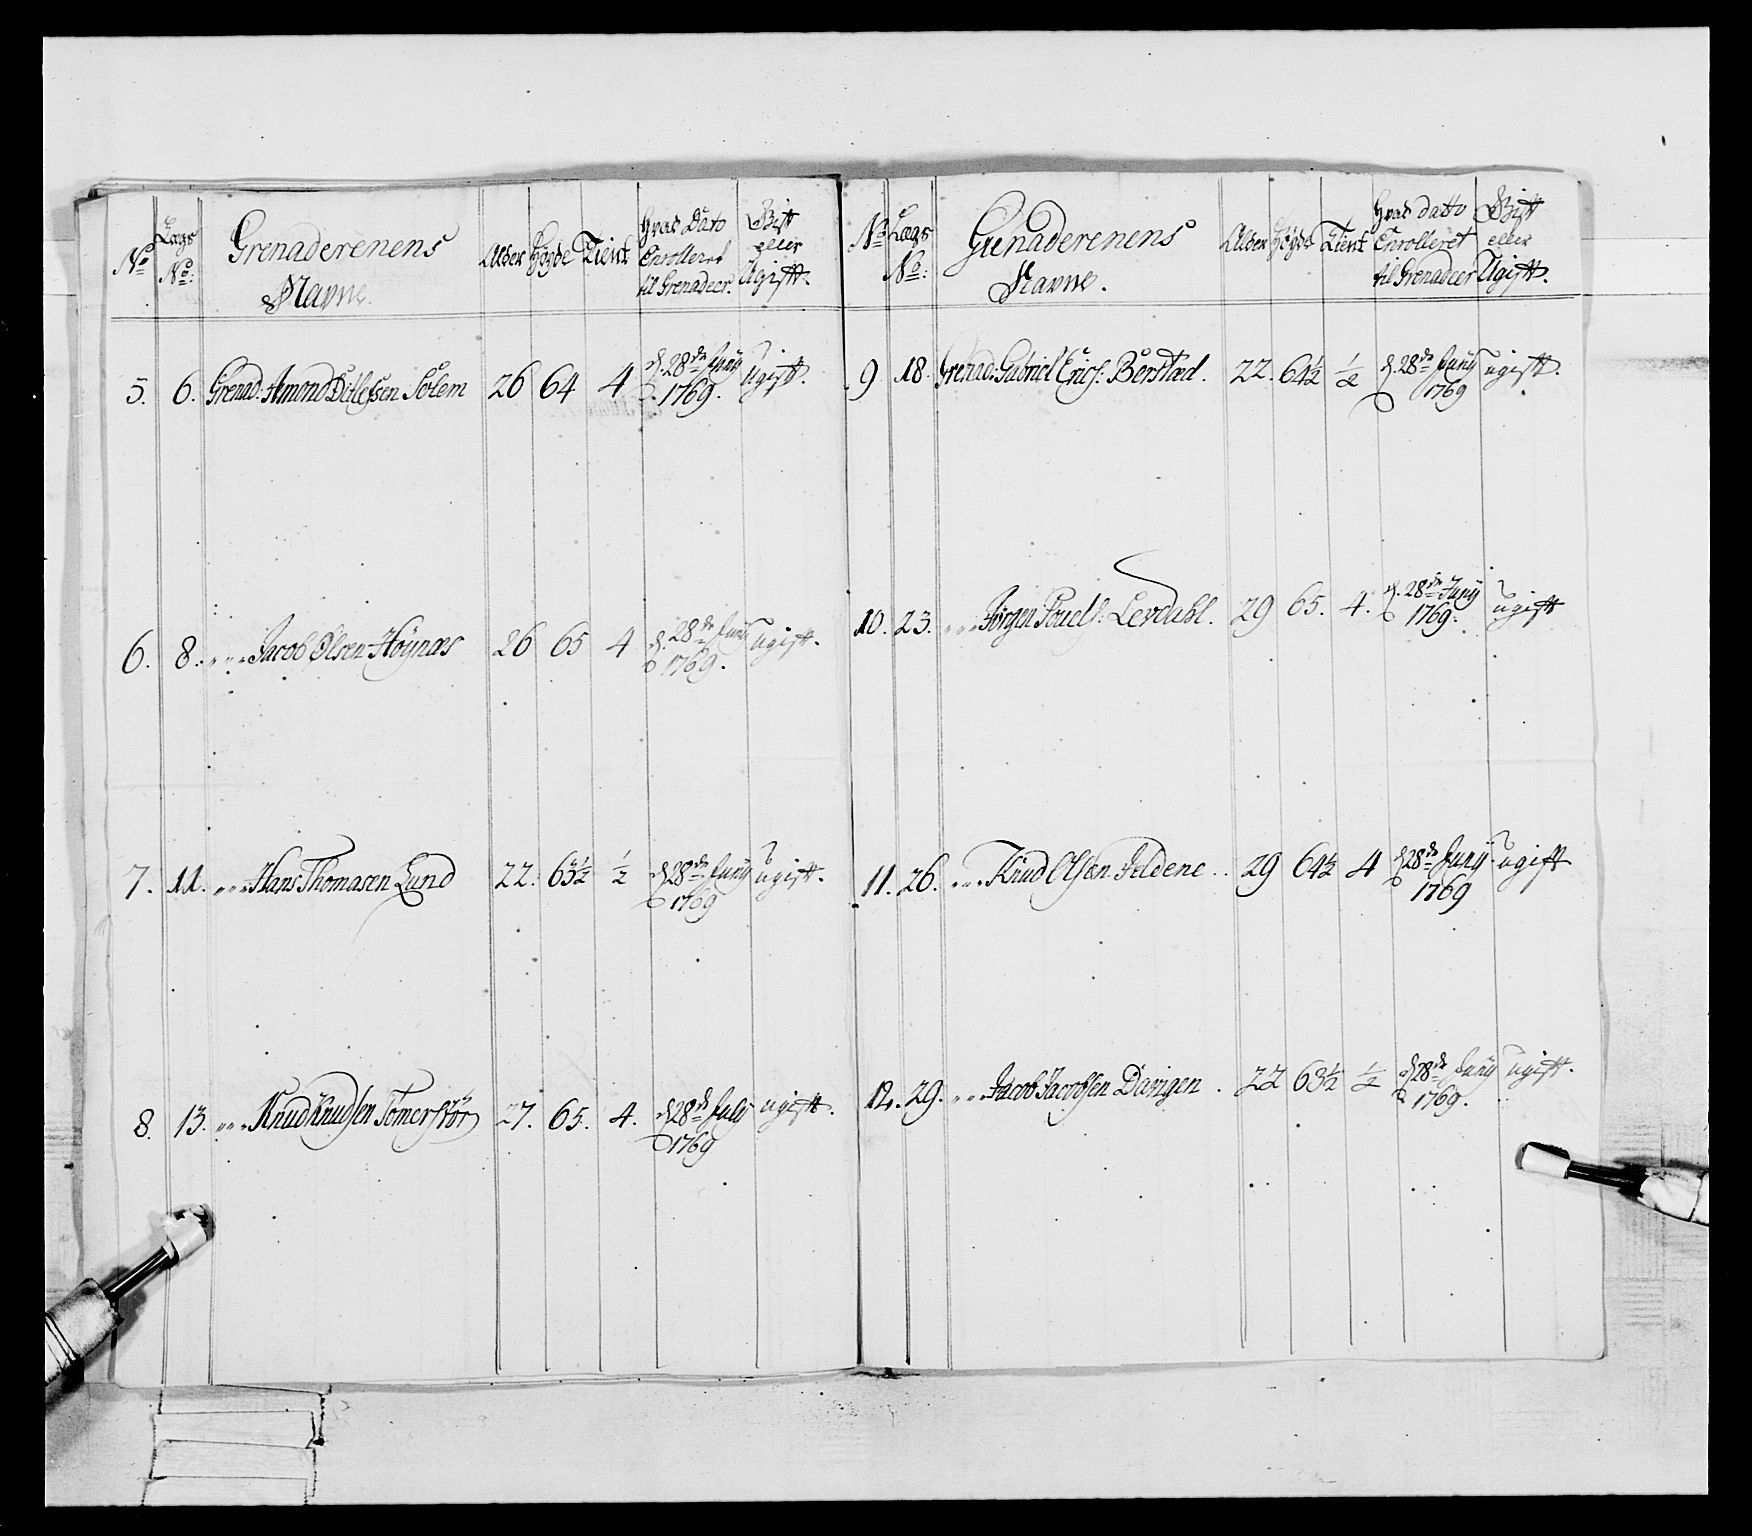 No Lægs No: Grenaderenens Navne. Alder Høyde Tient Hvad Dato Enrolleret til Grenadeer. Gift eller Ugift.
5. 6. Grenad: Amond Ditlefsen Solem 26 64 4 d. 28de Juny 1769. Ugift.
6. 8. " " " Jacob Olsen Høynæs 26 65 4 d. 28de Juny 1769. ugift.
7. 11. " " " Hans Thomasen Lund 22. 63½ ½ d. 28de Juny 1769 ugift.
8. 13. " " " Knud Knudsen Tømerstør 27. 65. 4. d. 28de July 1769 ugift.
No Lægs No: Grenaderenens Navne. Alder Høyde Tient Hvad datto Enrolleret til Grenadeer Gift eller Ugift.
9 18. Grenad: Gabriel Erics: Berstad. 22. 64½ ½ d. 28de Juny 1769 ugift.
10. 23. " " " Jørgen Pouels: Levdahl. 29 65. 4. d. 28de Juny 1769. ugift
11. 26. " " " Knud Olsen Feldene . . 29 64½ 4 d. 28de Juny 1769 ugift
12. 29. " " " Jacob Jacobsen Davigen . 22 63½ ½ d. 28de Juny 1769. ugift.